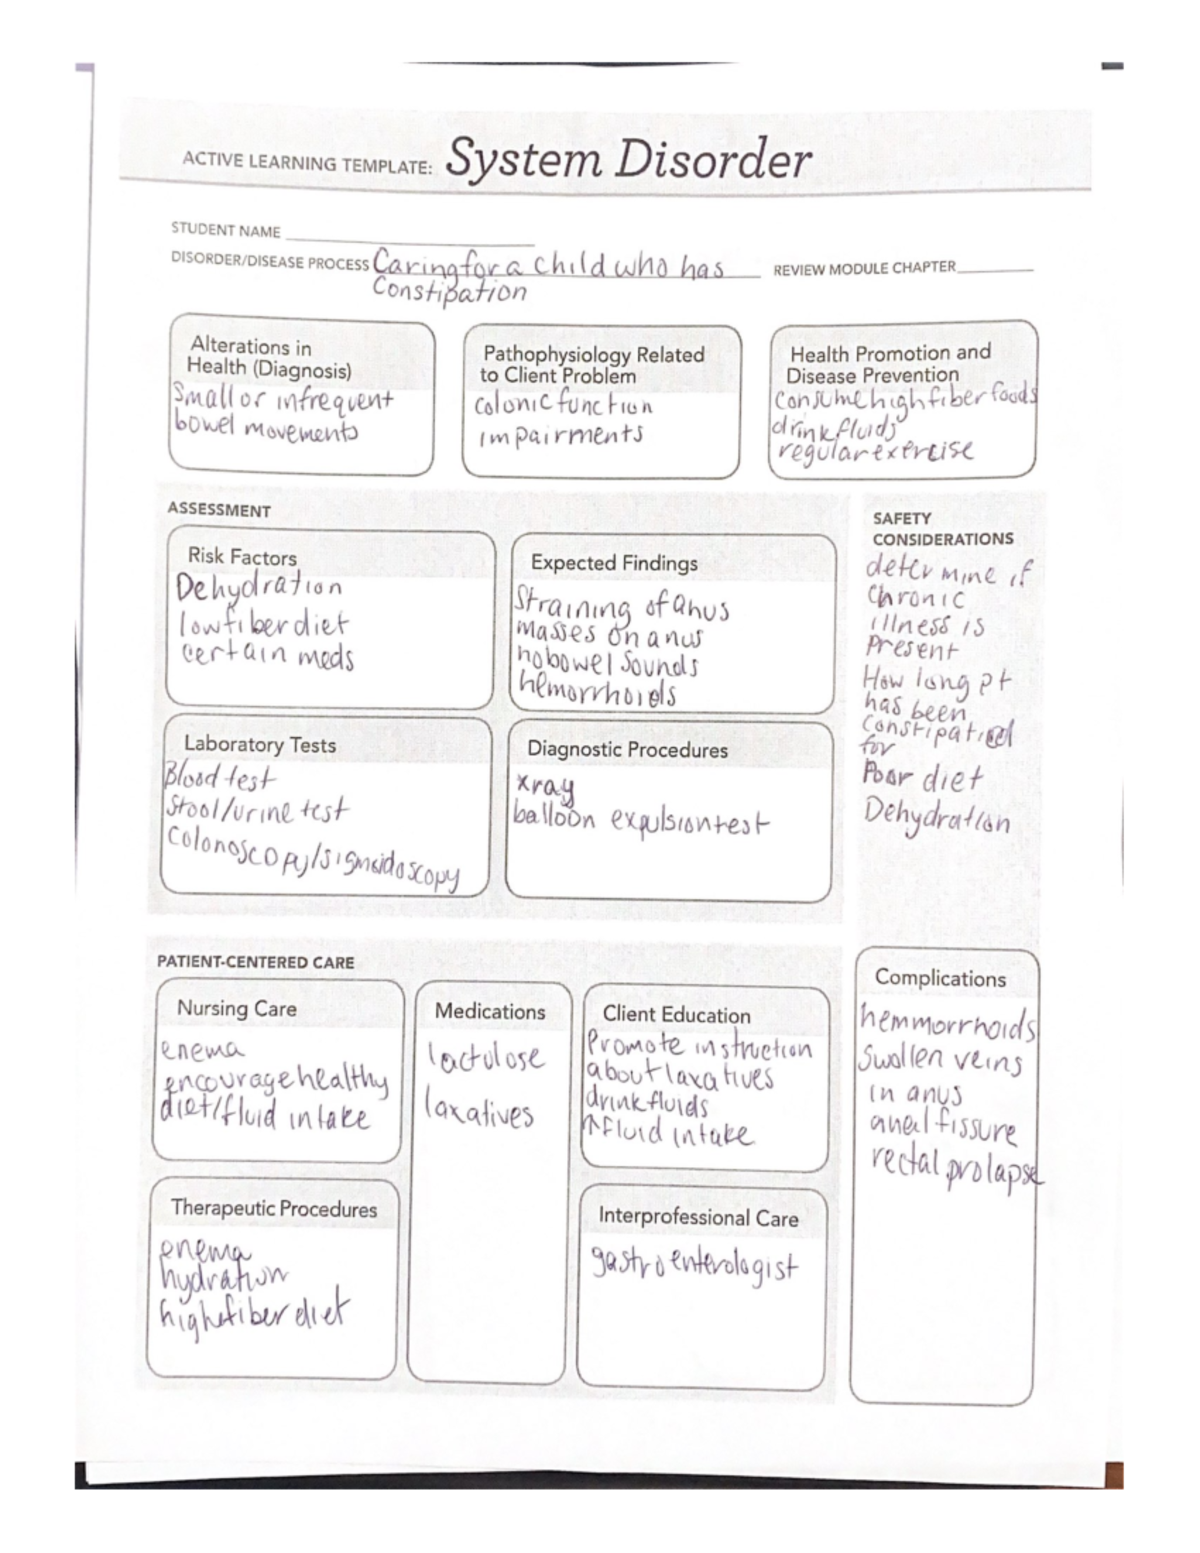 ACTIVE LEARNING TEMPLATE: System Disorder
STUDENT NAME
DISORDER/DISEASE PROCESS Caring for a child who has
Constipation
REVIEW MODULE CHAPTER
Alterations in
Health (Diagnosis)
Small or infrequent
bowel movements
Pathophysiology Related
to Client Problem
colonic function
impairments
Health Promotion and
Disease Prevention
consume high fiber foods
drink fluids
regular exercise
ASSESSMENT
Risk Factors
Dehydration
low fiber diet
certain meds
Expected Findings
Straining of anus
masses on anus
no bowel sounds
hemorrhoids
Laboratory Tests
Blood test
Stool/urine test
Colonoscopy/sigmoidoscopy
Diagnostic Procedures
xray
balloon expulsion test
SAFETY
CONSIDERATIONS
determine if
chronic
illness is
present
How long pt
has been
constipated
for
Poor diet
Dehydration
PATIENT-CENTERED CARE
Nursing Care
enema
encourage healthy
diet/fluid intake
Medications
lactulose
laxatives
Client Education
Promote instruction
about laxatives
drink fluids
↑fluid intake
Therapeutic Procedures
enema
hydration
high fiber diet
Interprofessional Care
gastroenterologist
Complications
hemmorrhoids
swollen veins
in anus
anal fissure
rectal prolapse